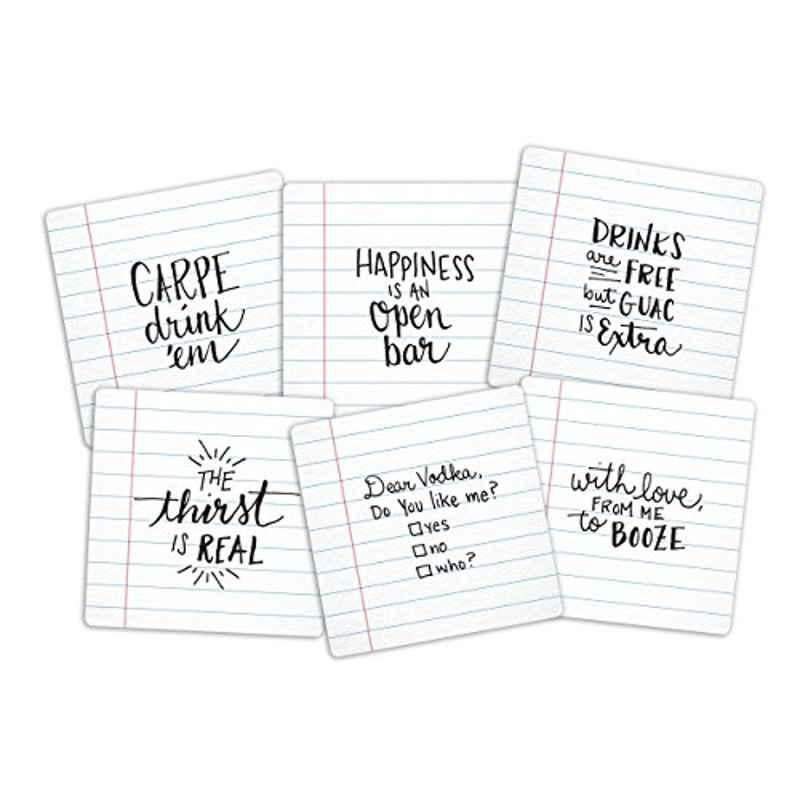 CARPE
drink
'em
HAPPINESS
IS AN
open
bar
DRINKS
are FREE
but GUAC
IS Extra
THE
thirst
IS REAL
Dear Vodka,
Do You like me?
yes
no
who?
with love,
FROM ME
to BOOZE